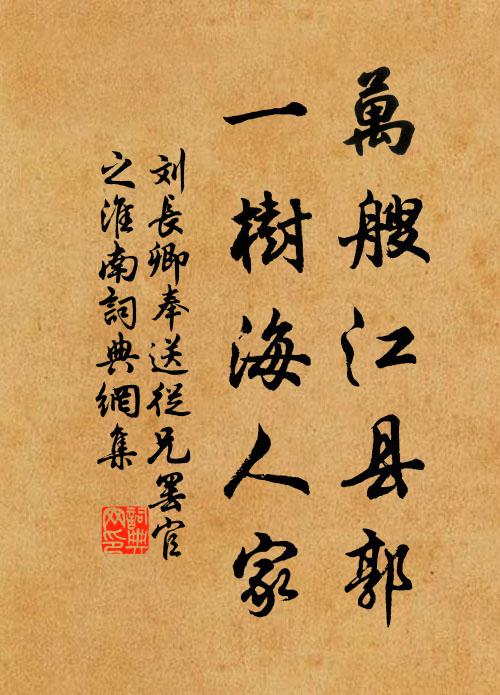 萬艘江县郭
一樹海人家
刘長卿奉送從兄罢官
之淮南詞典網集
詞典网印